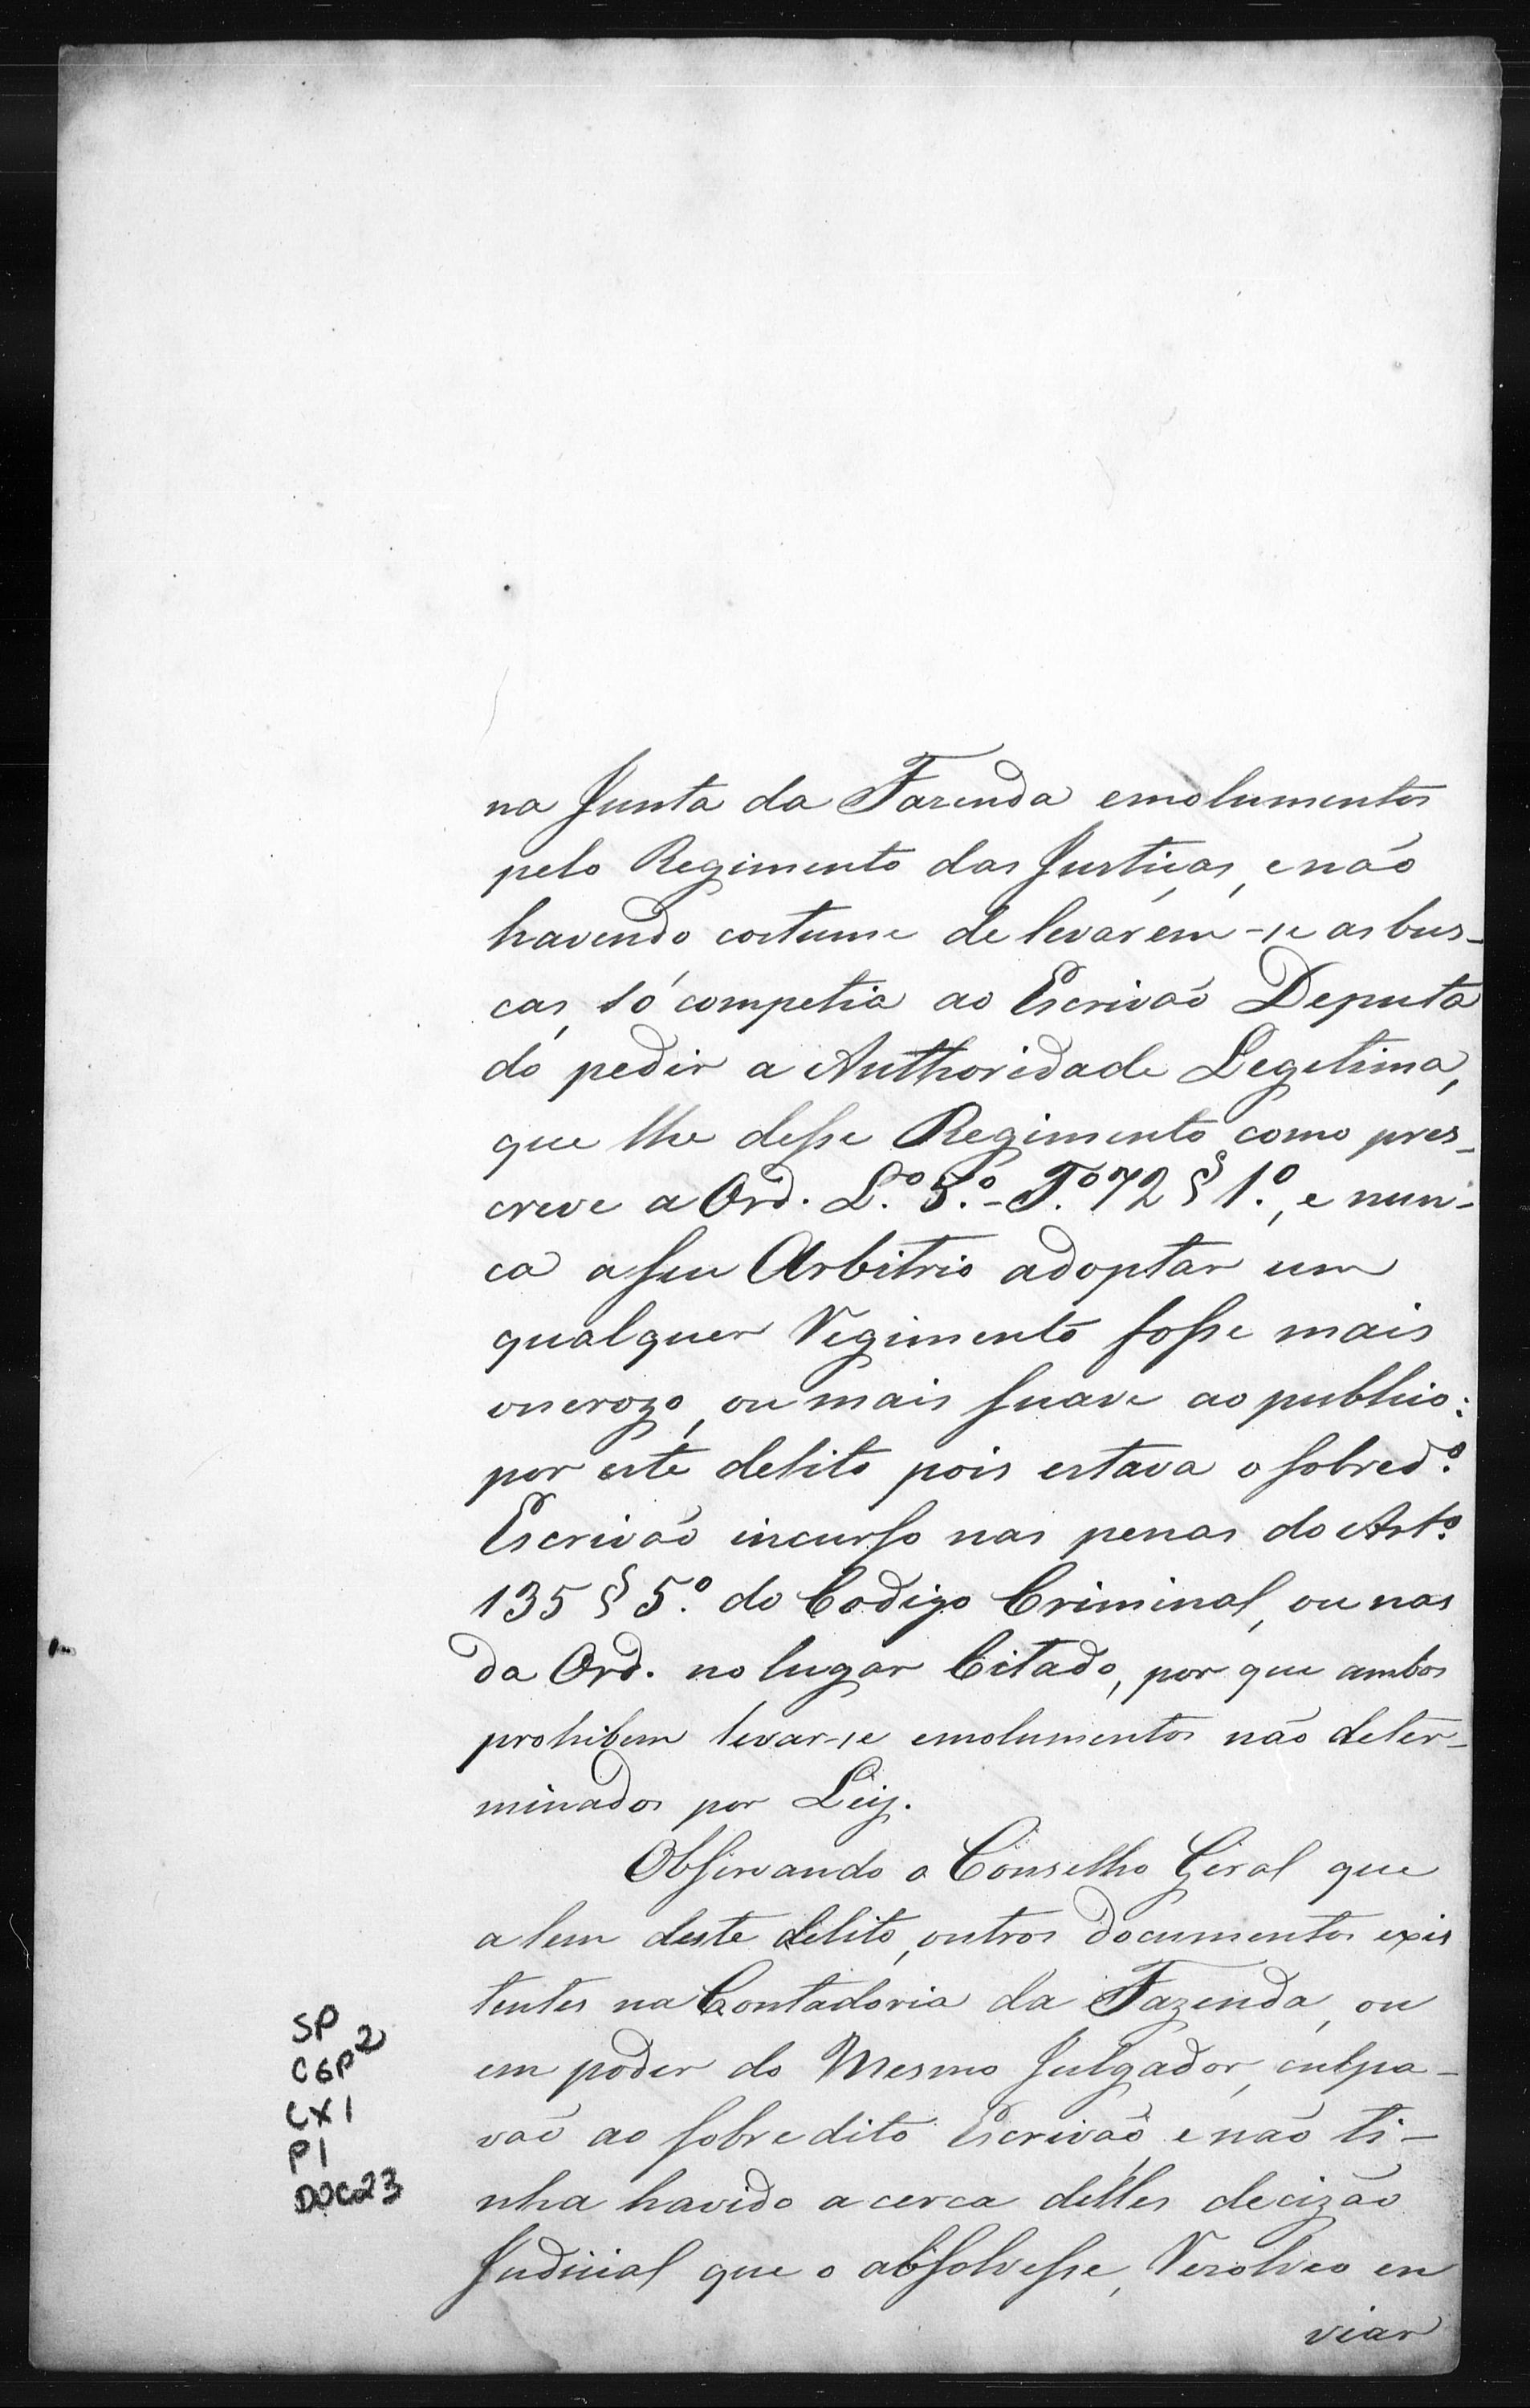 na Junta da Fazenda emolumentos
pelo Regimento das Justiças, e não
havendo costume de levarem-se as bus-
cas, só competia ao Escrivaõ Deputa
do pedir a Authoridade Legitima,
que lhe desse Regimento como pres-
creve a Ord. L.º 5.º - T.º 72 § 1.º, e nun-
ca a seu Arbitrio adoptar um
qualquer Regimento fosse mais
onerozo, ou mais suave ao publico:
por este delito pois estava o sobred.º
Escrivão incurso nas penas do Art.º
135 § 5.º do Codigo Criminal, ou nas
da Ord. no lugar Citado, por que ambos
prohibem levar-se emolumentos não deter-
minados por Leiy.
Observando o Conselho Geral que
alem deste delito, outros documentos exis
tentes na Contadoria da Fazenda, ou
em poder do Mesmo Julgador, culpa-
vaõ ao sobredito Escrivaõ, e não ti-
nha havido acerca delles decizão
Judicial que o absolvesse, Rezolveo en
viar
SP
CGP2
CX1
P1
DOC23